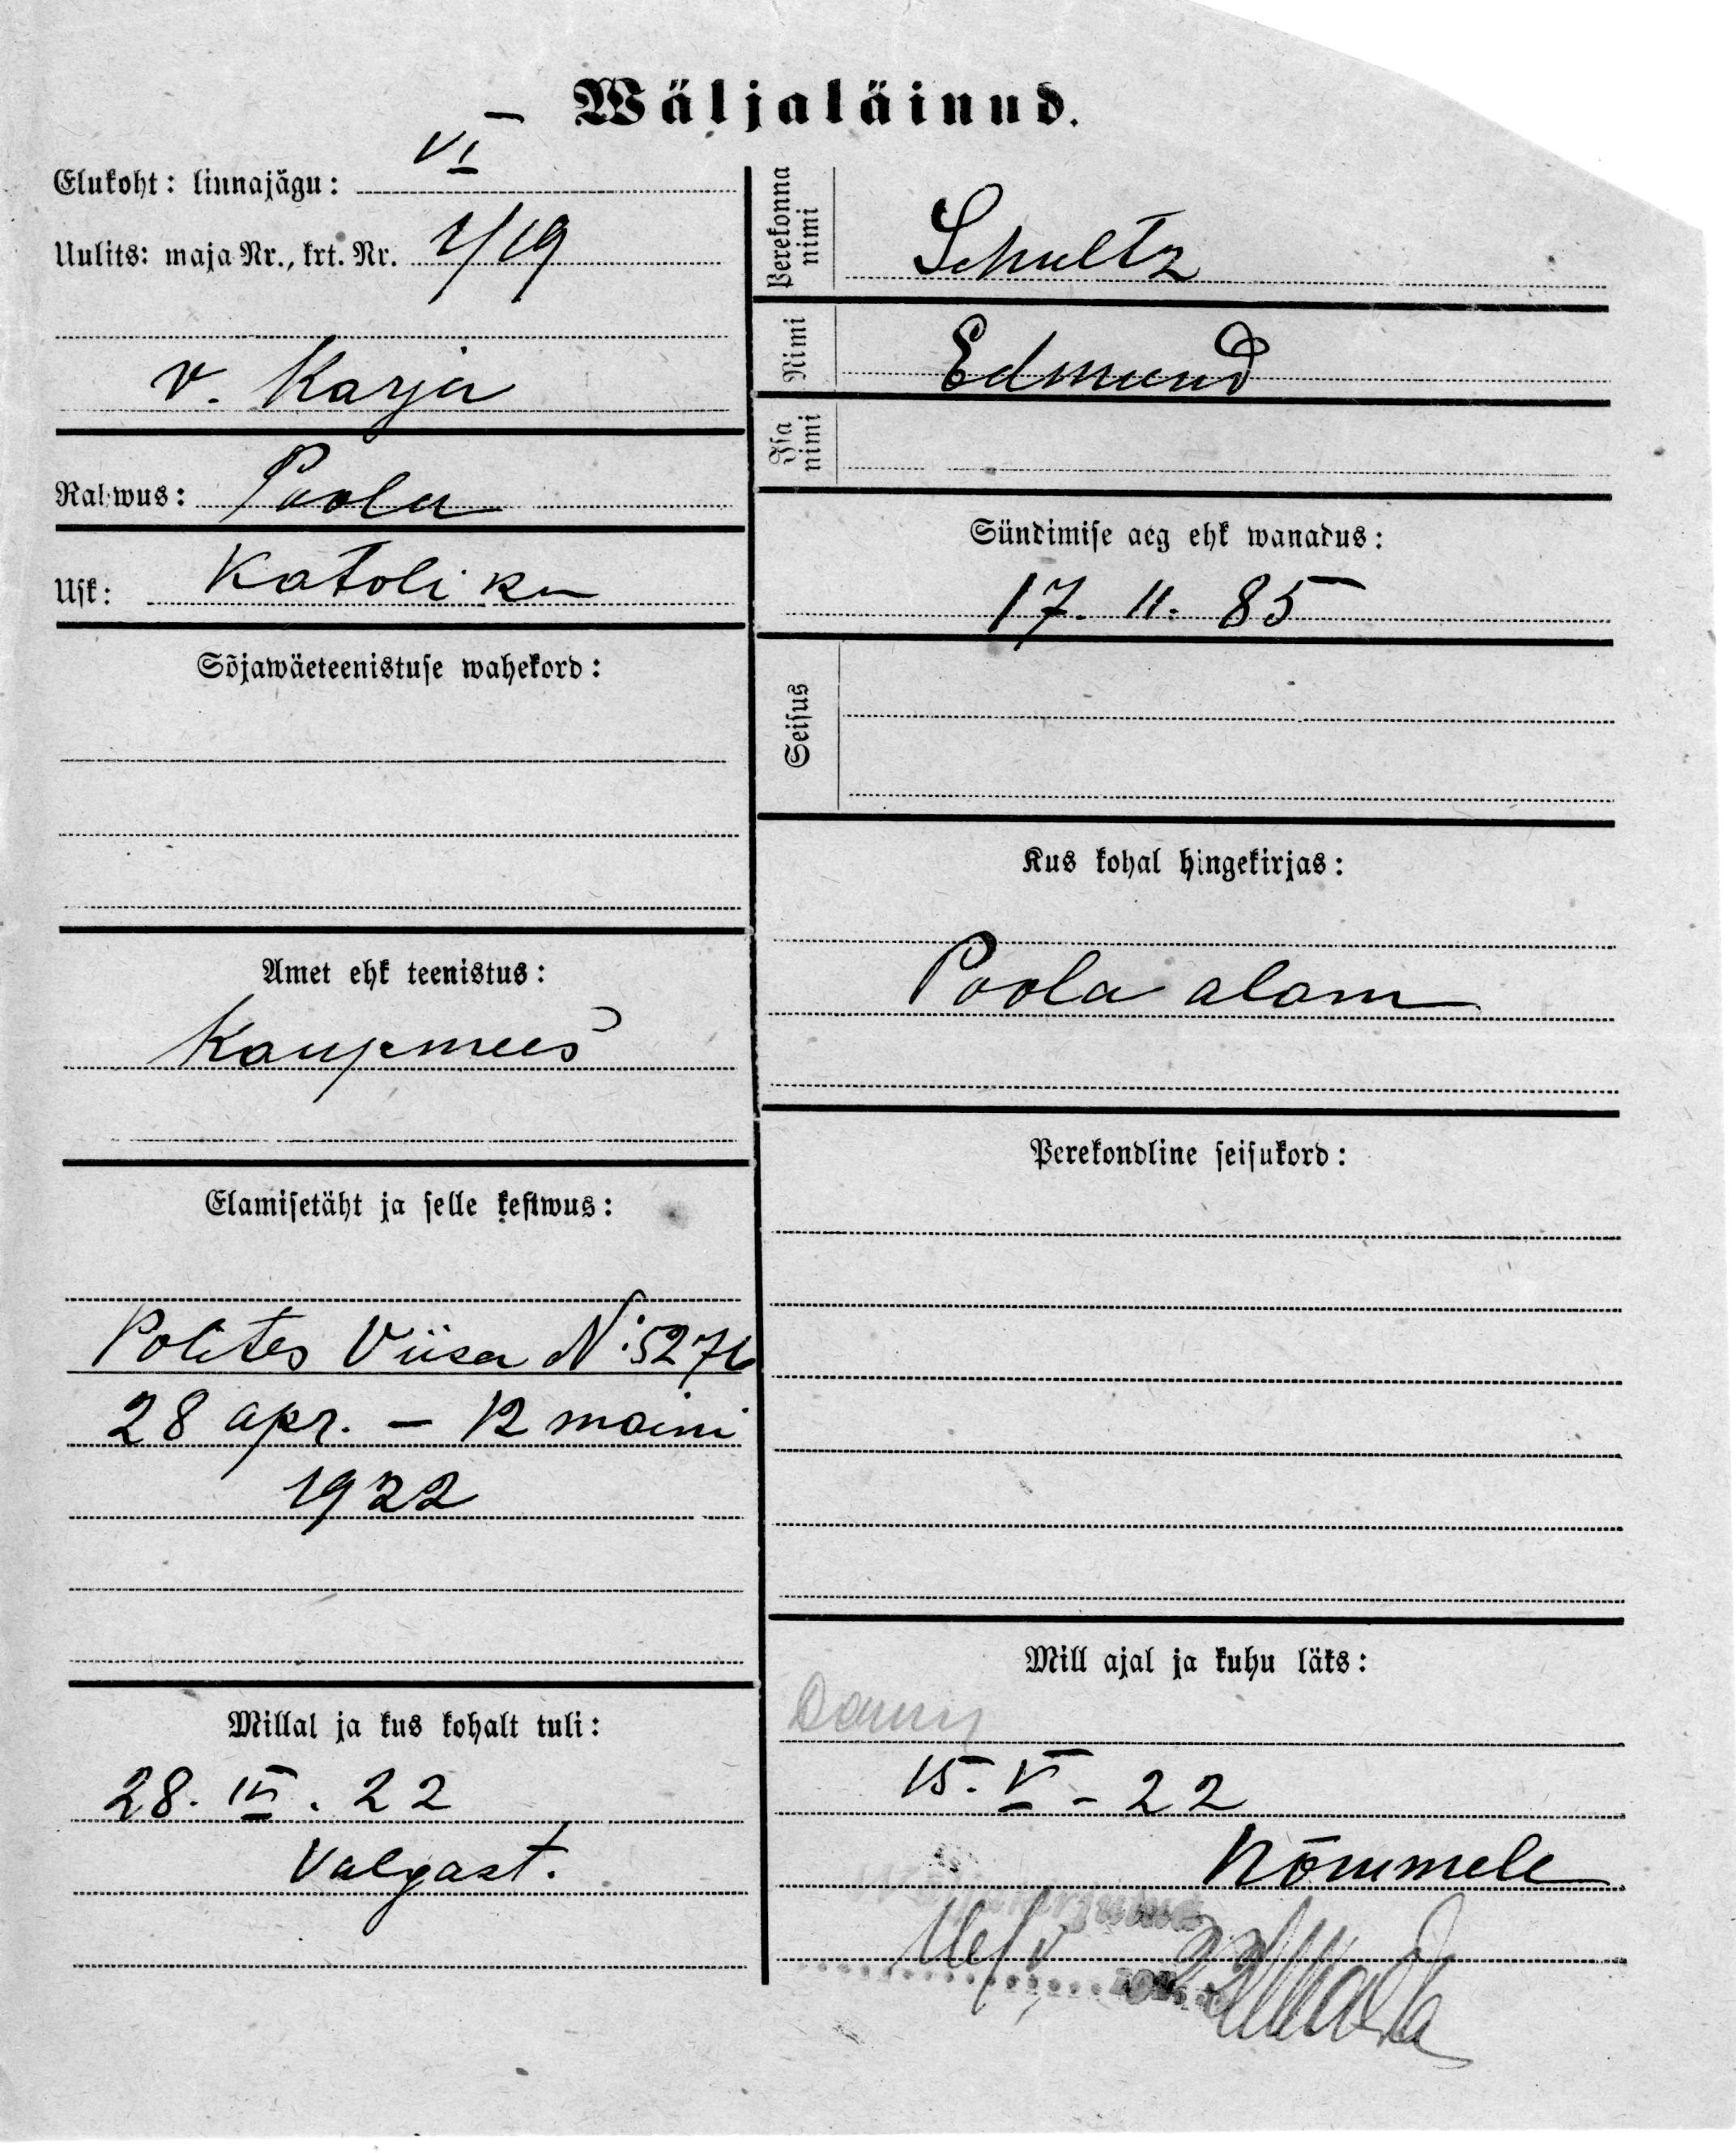 Wäljaläinud.
Elukoht: linnajägu: VI
Uulits: maja Nr., krt. Nr. 1/19
v. Karja
Rahwus: Poola
Usk: Katoliku
Sõjawäeteenistuse wahekord:
Amet ehk teenistus:
Kaupmees
Elamisetäht ja selle kestwus:
Polites Viisa N: 5276
28 apr. – 12 maini
1922
Millal ja kus kohalt tuli:
28. IV. 22
Valgast.
Perekonna nimi
Schultz
Nimi
Edmund
Isa nimi
Sündimise aeg ehk wanadus:
17. 11. 85
Seisus
Kus kohal hingekirjas:
Poola alam
Perekondline seisukord:
Mill ajal ja kuhu läks:
15. V - 22
Nõmmele